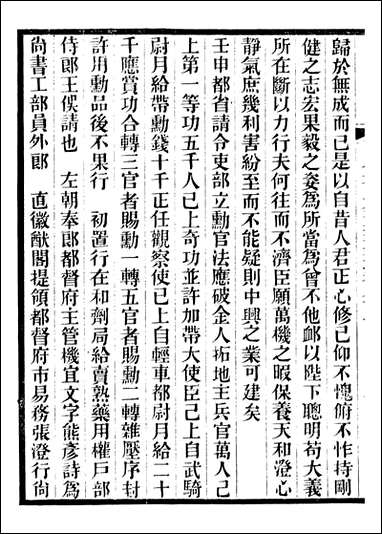 歸於無成而已是以自昔人君正心修己仰不愧俯不怍持剛
健之志宏果毅之姿為所當為曾不他䘏以陛下聰明苟大義
所在斷以力行夫何往而不濟臣願萬機之暇保養天和澄心
靜氣庶幾利害紛至而不能疑則中興之業可建矣
壬申都省請令吏部立勳官法應破金人拓地主兵官萬人已
上第一等功五千人已上奇功並許加帶大使臣已上自武騎
尉月給帶勳錢十千正任觀察使已上自輕車都尉月給二十
千應賞功合轉三官者賜勳一轉五官者賜勳二轉雜壓序封
許用勳品後不果行　初置行在和劑局給賣熟藥用權戶部
侍郎王俁請也　左朝奉郎都督府主管機宜文字熊彥詩為
尚書工部員外郎　直徽猷閣提領都督府市易務張澄行尚